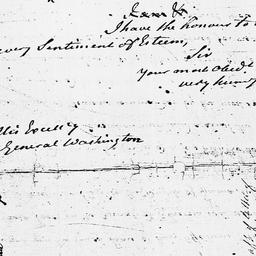 I am &
I have the honour To
every Sentiment of Esteem,
Sir
Your most Obed.t
very hum
His Excell.y
General Washington